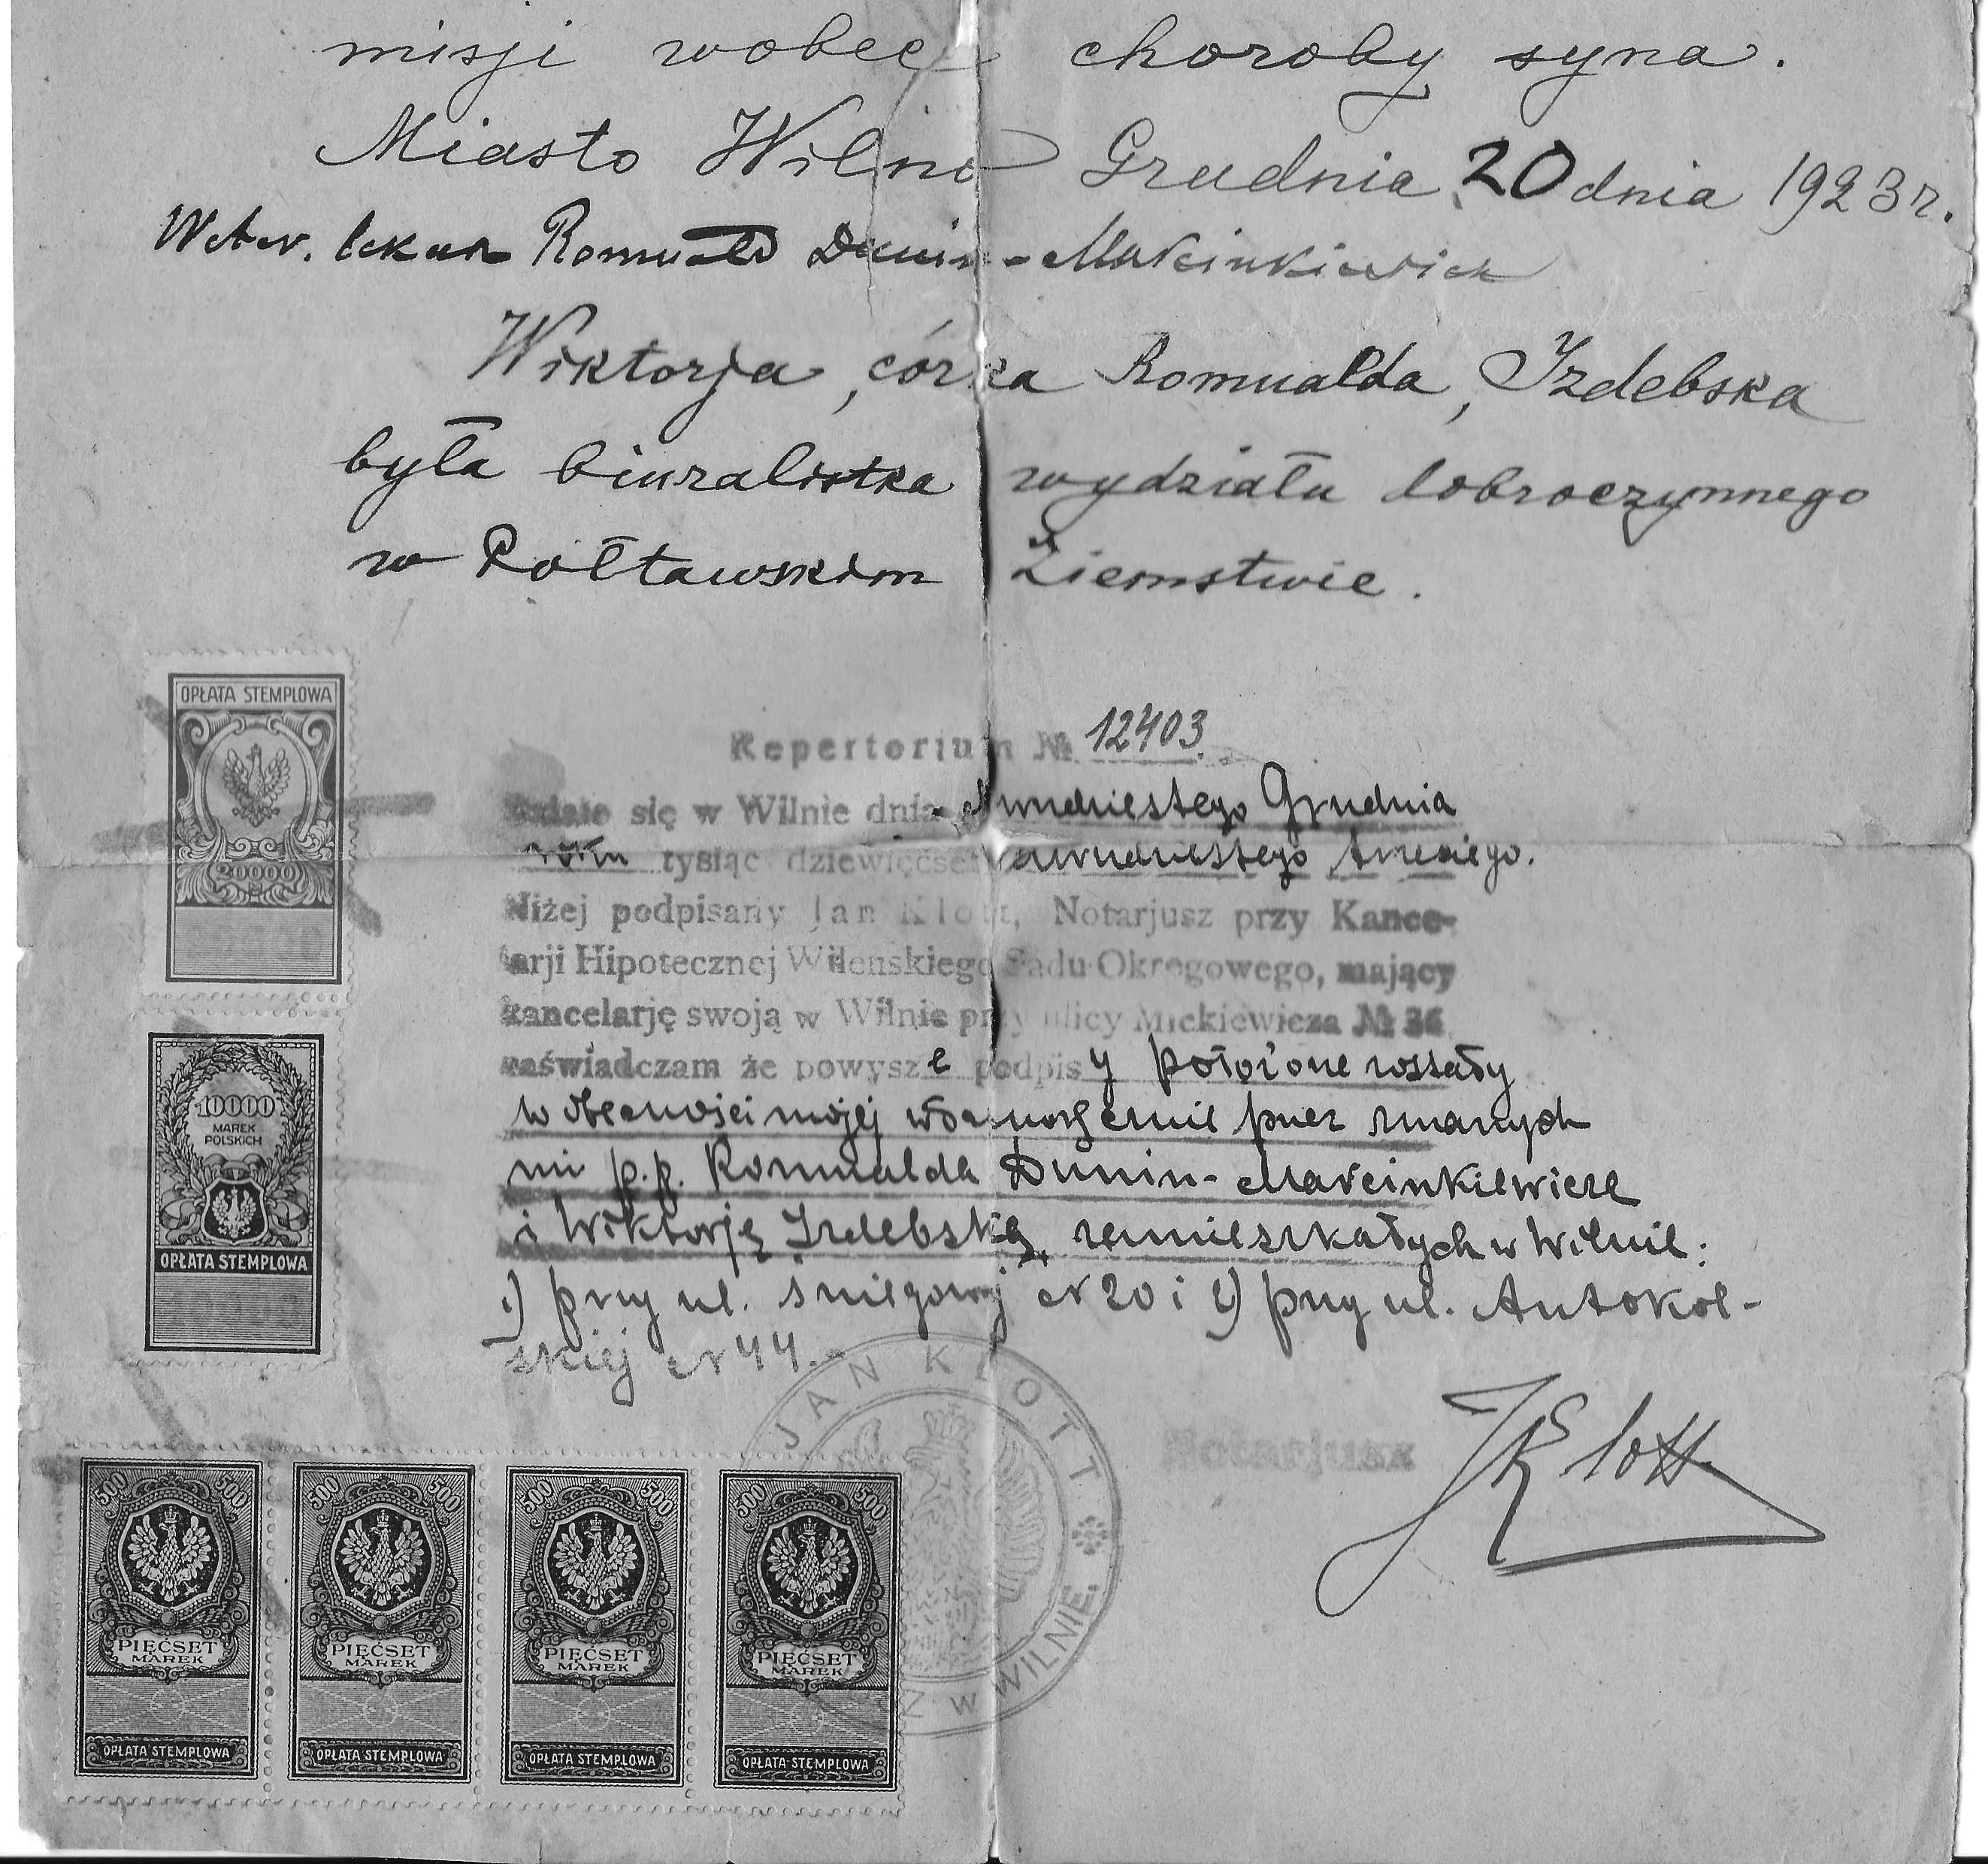 misji wobec choroby syna.
Miasto Wilno Grudnia 20 dnia 1923 r.
Weter. lekarz Romuald Dunin-Marcinkiewicz
Wiktorja, córka Romualda, Izdebska
była biuralistka wydziału dobroczynnego
w Połtawskim Ziemstwie.
OPŁATA STEMPLOWA
20000
Repertorium № 12403.
Działo się w Wilnie dnia dwudziestego Grudnia
roku tysiąc dziewięćset dwudziestego trzeciego.
Niżej podpisany Jan Klott, Notarjusz przy Kance-
larji Hipotecznej Wileńskiego Sądu Okręgowego, mający
kancelarję swoją w Wilnie przy ulicy Mickiewicza № 36
zaświadczam że powyższe podpisy położone zostały
w obecności mojej własnoręcznie przez znanych
mi p.p. Romualda Dunin-Marcinkiewicza
i Wiktorję Izdebską, zamieszkałych w Wilnie:
1) przy ul. Śniegowej N 20 i 2) przy ul. Antokol-
skiej N 44.-
10000
MAREK
POLSKICH
OPŁATA STEMPLOWA
JAN KLOTT
W WILNIE.
Notarjusz JKlott
500 500 500 500 500 500 500 500
PIĘĆSET MAREK PIĘĆSET MAREK PIĘĆSET MAREK PIĘĆSET MAREK
OPŁATA STEMPLOWA OPŁATA STEMPLOWA OPŁATA STEMPLOWA OPŁATA STEMPLOWA